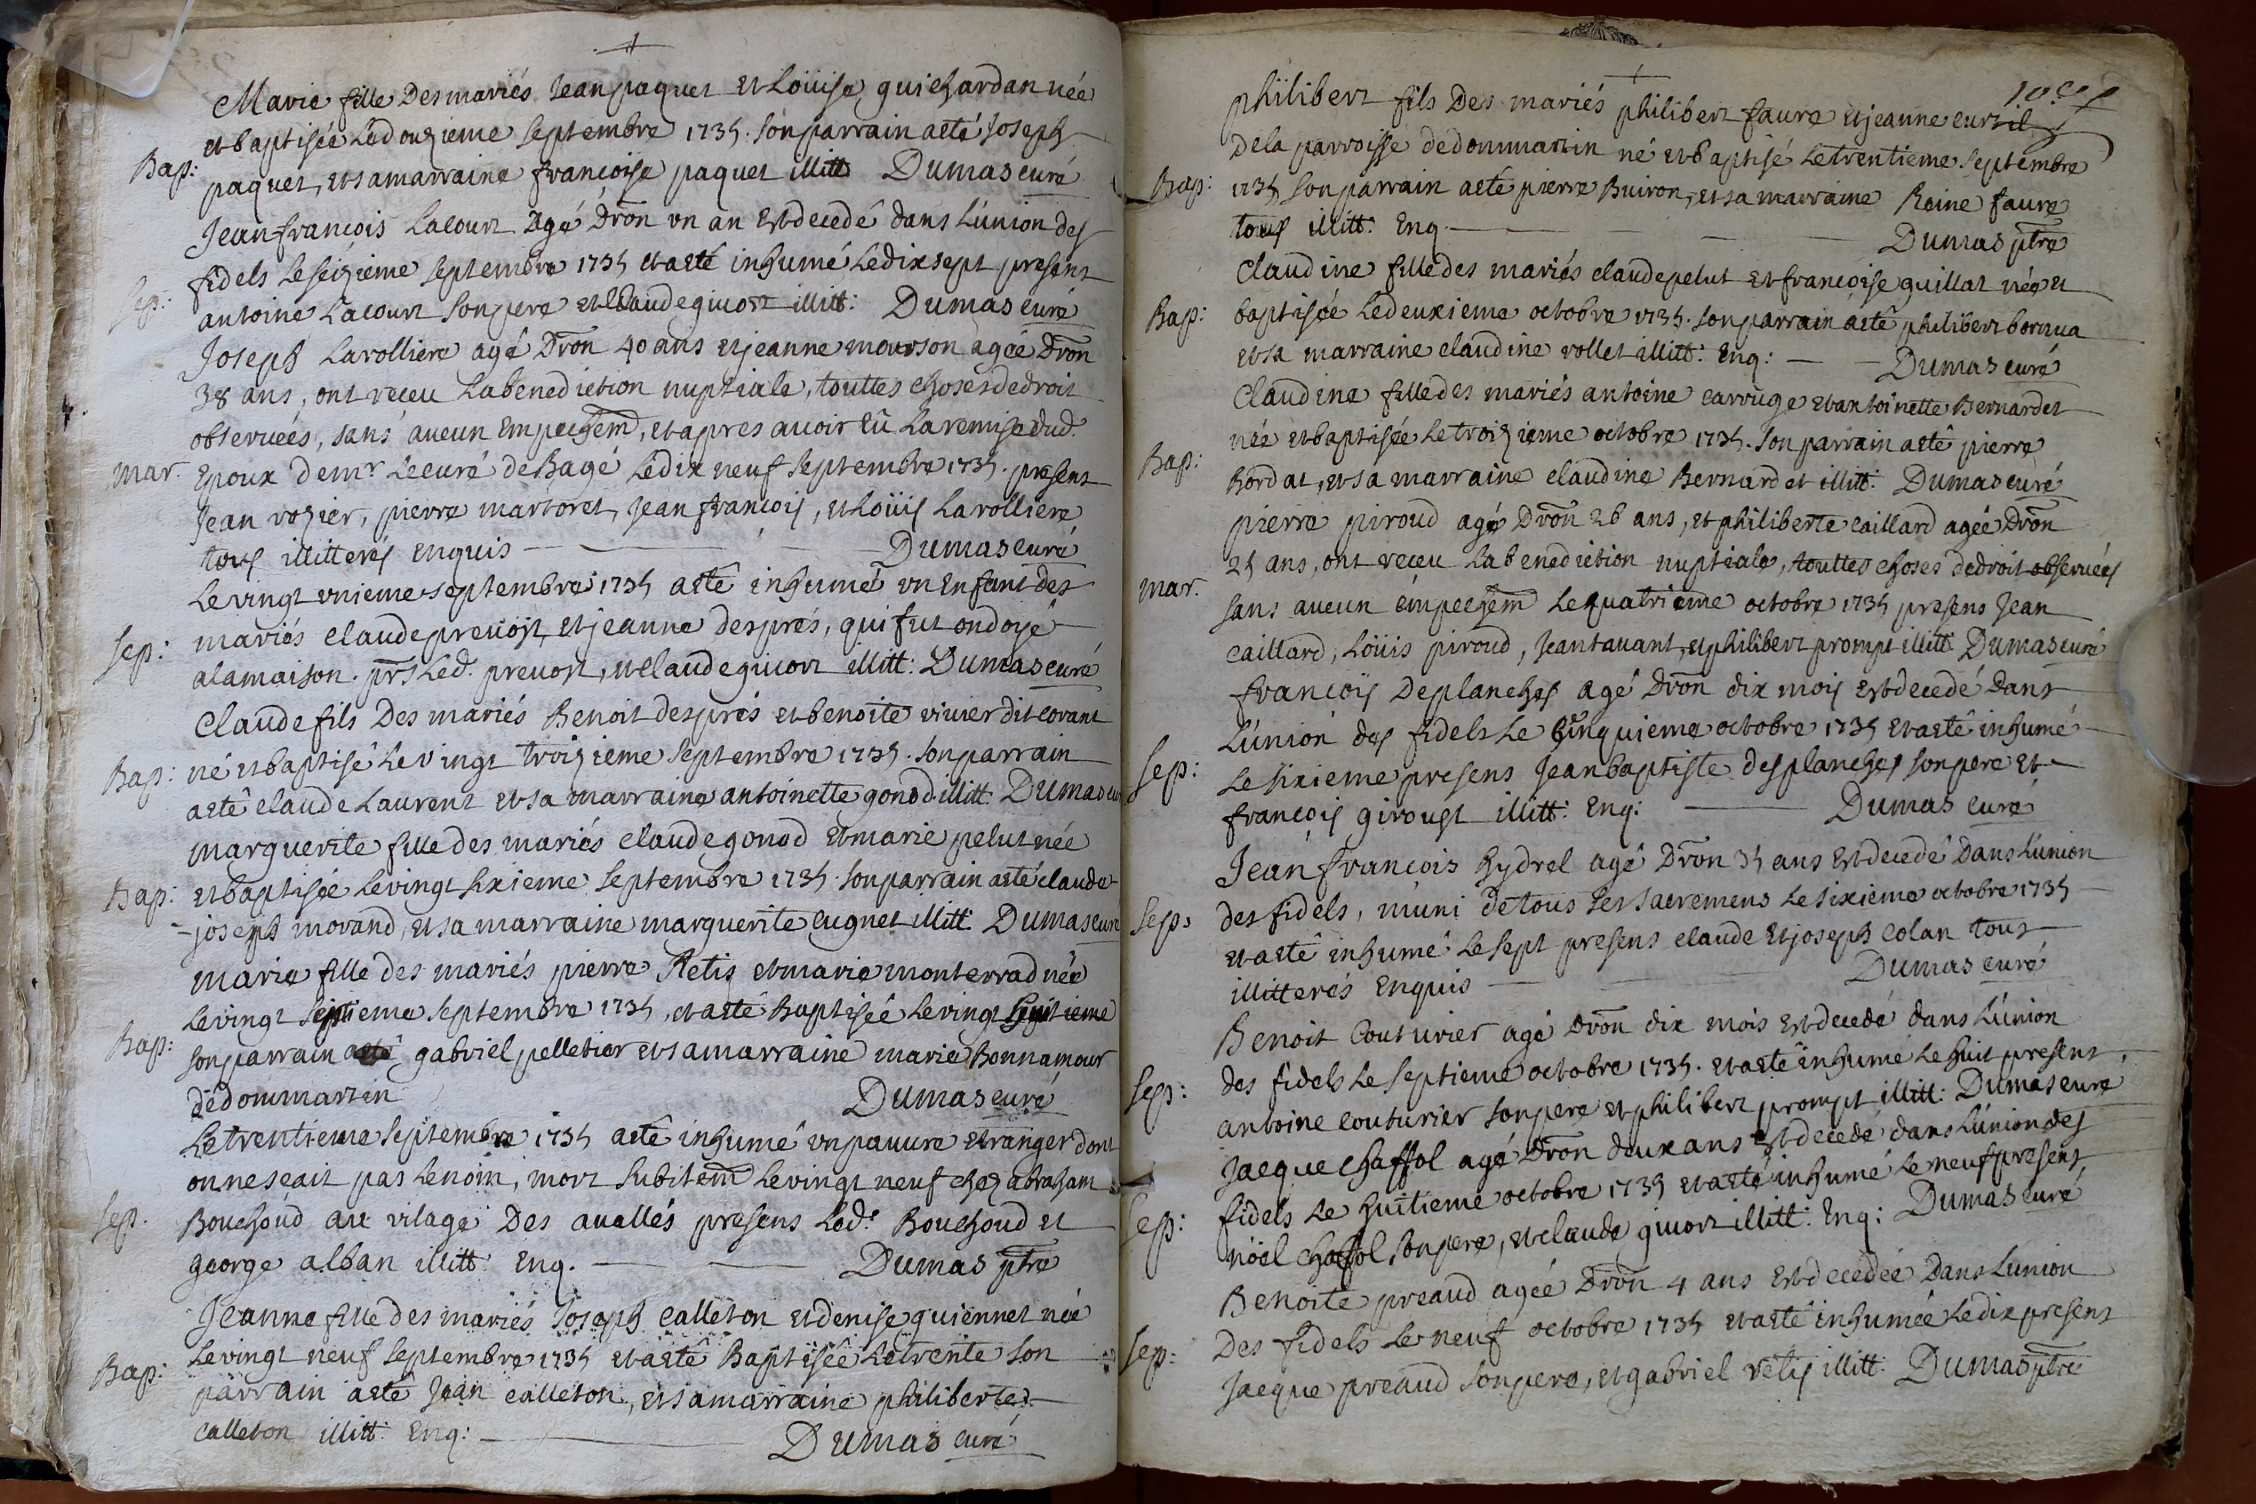 Marie fille Des mariés Jean paquet et Loüise guichardan née
et baptisée Le douzieme septembre 1735. son parrain a eté Joseph
Bap: paquet, et sa marraine francoise paquet illitt Dumas curé
Jean francois Lacour Agé Dron un an est decedé dans L'union des
fidels Le seizieme septembre 1735 et a eté inhumé Le dix sept present
Sep: antoine Lacour son pere et Claude givort illitt: Dumas curé
Joseph Larolliere agé Dron 40 ans et jeanne mourson agée Dron
38 ans, ont receu La benediction nuptiale, touttes choses de droit
observées, sans aucun Empechem, et apres avoir Eü La remise dud.
mar. Epoux de mr Le curé de Bagé Le dix neuf septembre 1735. present
Jean rozier, pierre martoret, Jean francois, et Loüis Larolliere
tous illitterés Enquis Dumas curé
Le vingt unieme septembre 1735 a eté inhumé un Enfant des
Sep: mariés claude prevost, et jeanne després, qui fut ondoyé
a la maison. prs Led. prevost, et claude givort illitt: Dumas curé
Claude fils Des mariés Benoit després et benoite vivier dit Corant
Bap: né et baptisé Le vingt troizieme septembre 1735. son parrain
a eté claude Laurent et sa marraine antoinette gonod illitt: Dumas cu
marguerite fille des mariés claude gonod et marie pelut née
Bap: et baptisée Le vingt sixieme septembre 1735. son parrain a eté claude
joseph morand, et sa marraine marguerite Cugnet illitt: Dumas cur
marie fille des mariés pierre Retis et marie monterrad née
Le vingt septieme septembre 1735, et a eté Baptisée Le vingt huitieme
Bap: son parrain a eté gabriel pelletier et sa marraine marie Bonnamour
de dommartin Dumas curé
Le trentieme septembre 1735 a eté inhumé un pauvre etranger dont
on ne scait pas Le nom, mort subitem Le vingt neuf chez abraham
Sep. Bouchoud au vilage Des avallés presens Led: Bouchoud et
george alban illitt: Enq. Dumas ptre
Jeanne fille des mariés Joseph calleton et denise guiennet née
Le vingt neuf septembre 1735 et a eté Baptisée Le trente son
Bap: parrain a eté Jean calleton, et sa marraine philiberte
calleton illitt: Enq: Dumas curé
philibert fils Des mariés philibert faure et jeanne curtil
De la parroisse de dommartin né et baptisé Le trentieme septembre
Bap: 1735 son parrain a eté pierre Buiron, et sa marraine Reine faure
tous illitt: Enq. Dumas ptre
Claudine fille des mariés claude pelut et francoise guillat née et
Bap: baptisée Le deuxieme octobre 1735. son parrain a eté philibert
et sa marraine claudine vollet illitt: Enq: Dumas curé
Claudine fille des mariés antoine carruge et antoinette Bernardet
née et baptisée Le troizieme octobre 1735. son parrain a eté pierre
Bap: Bordat, et sa marraine claudine Bernardet illitt: Dumas curé
pierre piroud agé Dron 26 ans, et philiberte caillard agée Dron
25 ans, ont receu La benediction nuptiale, touttes choses de droit observées
mar. sans aucun empechem Le quatrieme octobre 1735 presens Jean
caillard, Loüis piroud, Jean tavant, et philibert prompt illitt: Dumas curé
françois Deplanches agé Dron dix mois est decedé Dans
L'union des fidels Le Cinquieme octobre 1735 et a eté inhumé
Sep: Le sixieme presens Jean baptiste desplanches son pere et
françois giroust illitt: Enq: Dumas curé
Jean francois hydrel agé Dron 35 ans est decedé Dans L'union
Sep: des fidels, muni de tous Les sacremens Le sixieme octobre 1735
et a eté inhumé Le sept presens claude et joseph Colan tous
illitterés Enquis Dumas curé
Benoit Couturier agé Dron dix mois est decedé dans L'union
Sep: des fidels Le septieme octobre 1735. et a eté inhumé Le huit present
antoine couturier son pere et philibert prompt illitt: Dumas curé
Jacque chaffol agé Dron deux ans est decedé dans L'union des
Sep: fidels Le huitieme octobre 1735 et a eté inhumé Le neuf present
nöel chaffol son pere, et claude givort illitt: Enq: Dumas curé
Benoite preaud agée Dron 4 ans est decedée Dans L'union
Sep: Des fidels Le neuf octobre 1735 et a eté inhumée Le dix present
Jacque preaud son pere, et gabriel retis illitt: Dumas ptre